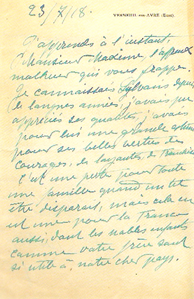 23/7/18.
VERNEUIL SUR AVRE (Eure)
J'apprends à l'instant,
Monsieur Madame l'affreux
malheur qui vous frappe.
Je connaissais depuis
de longues années, j'avais pu
apprécier ses qualités, j'avais
pour lui une grande estime
pour ses belles vertus de
courage, de
C'est une perte pour toute
une famille quand un tel
être disparaît, mais cela en
est une pour la France
aussi, dont les nobles enfants
comme votre frère sont
si utiles à notre cher pays.